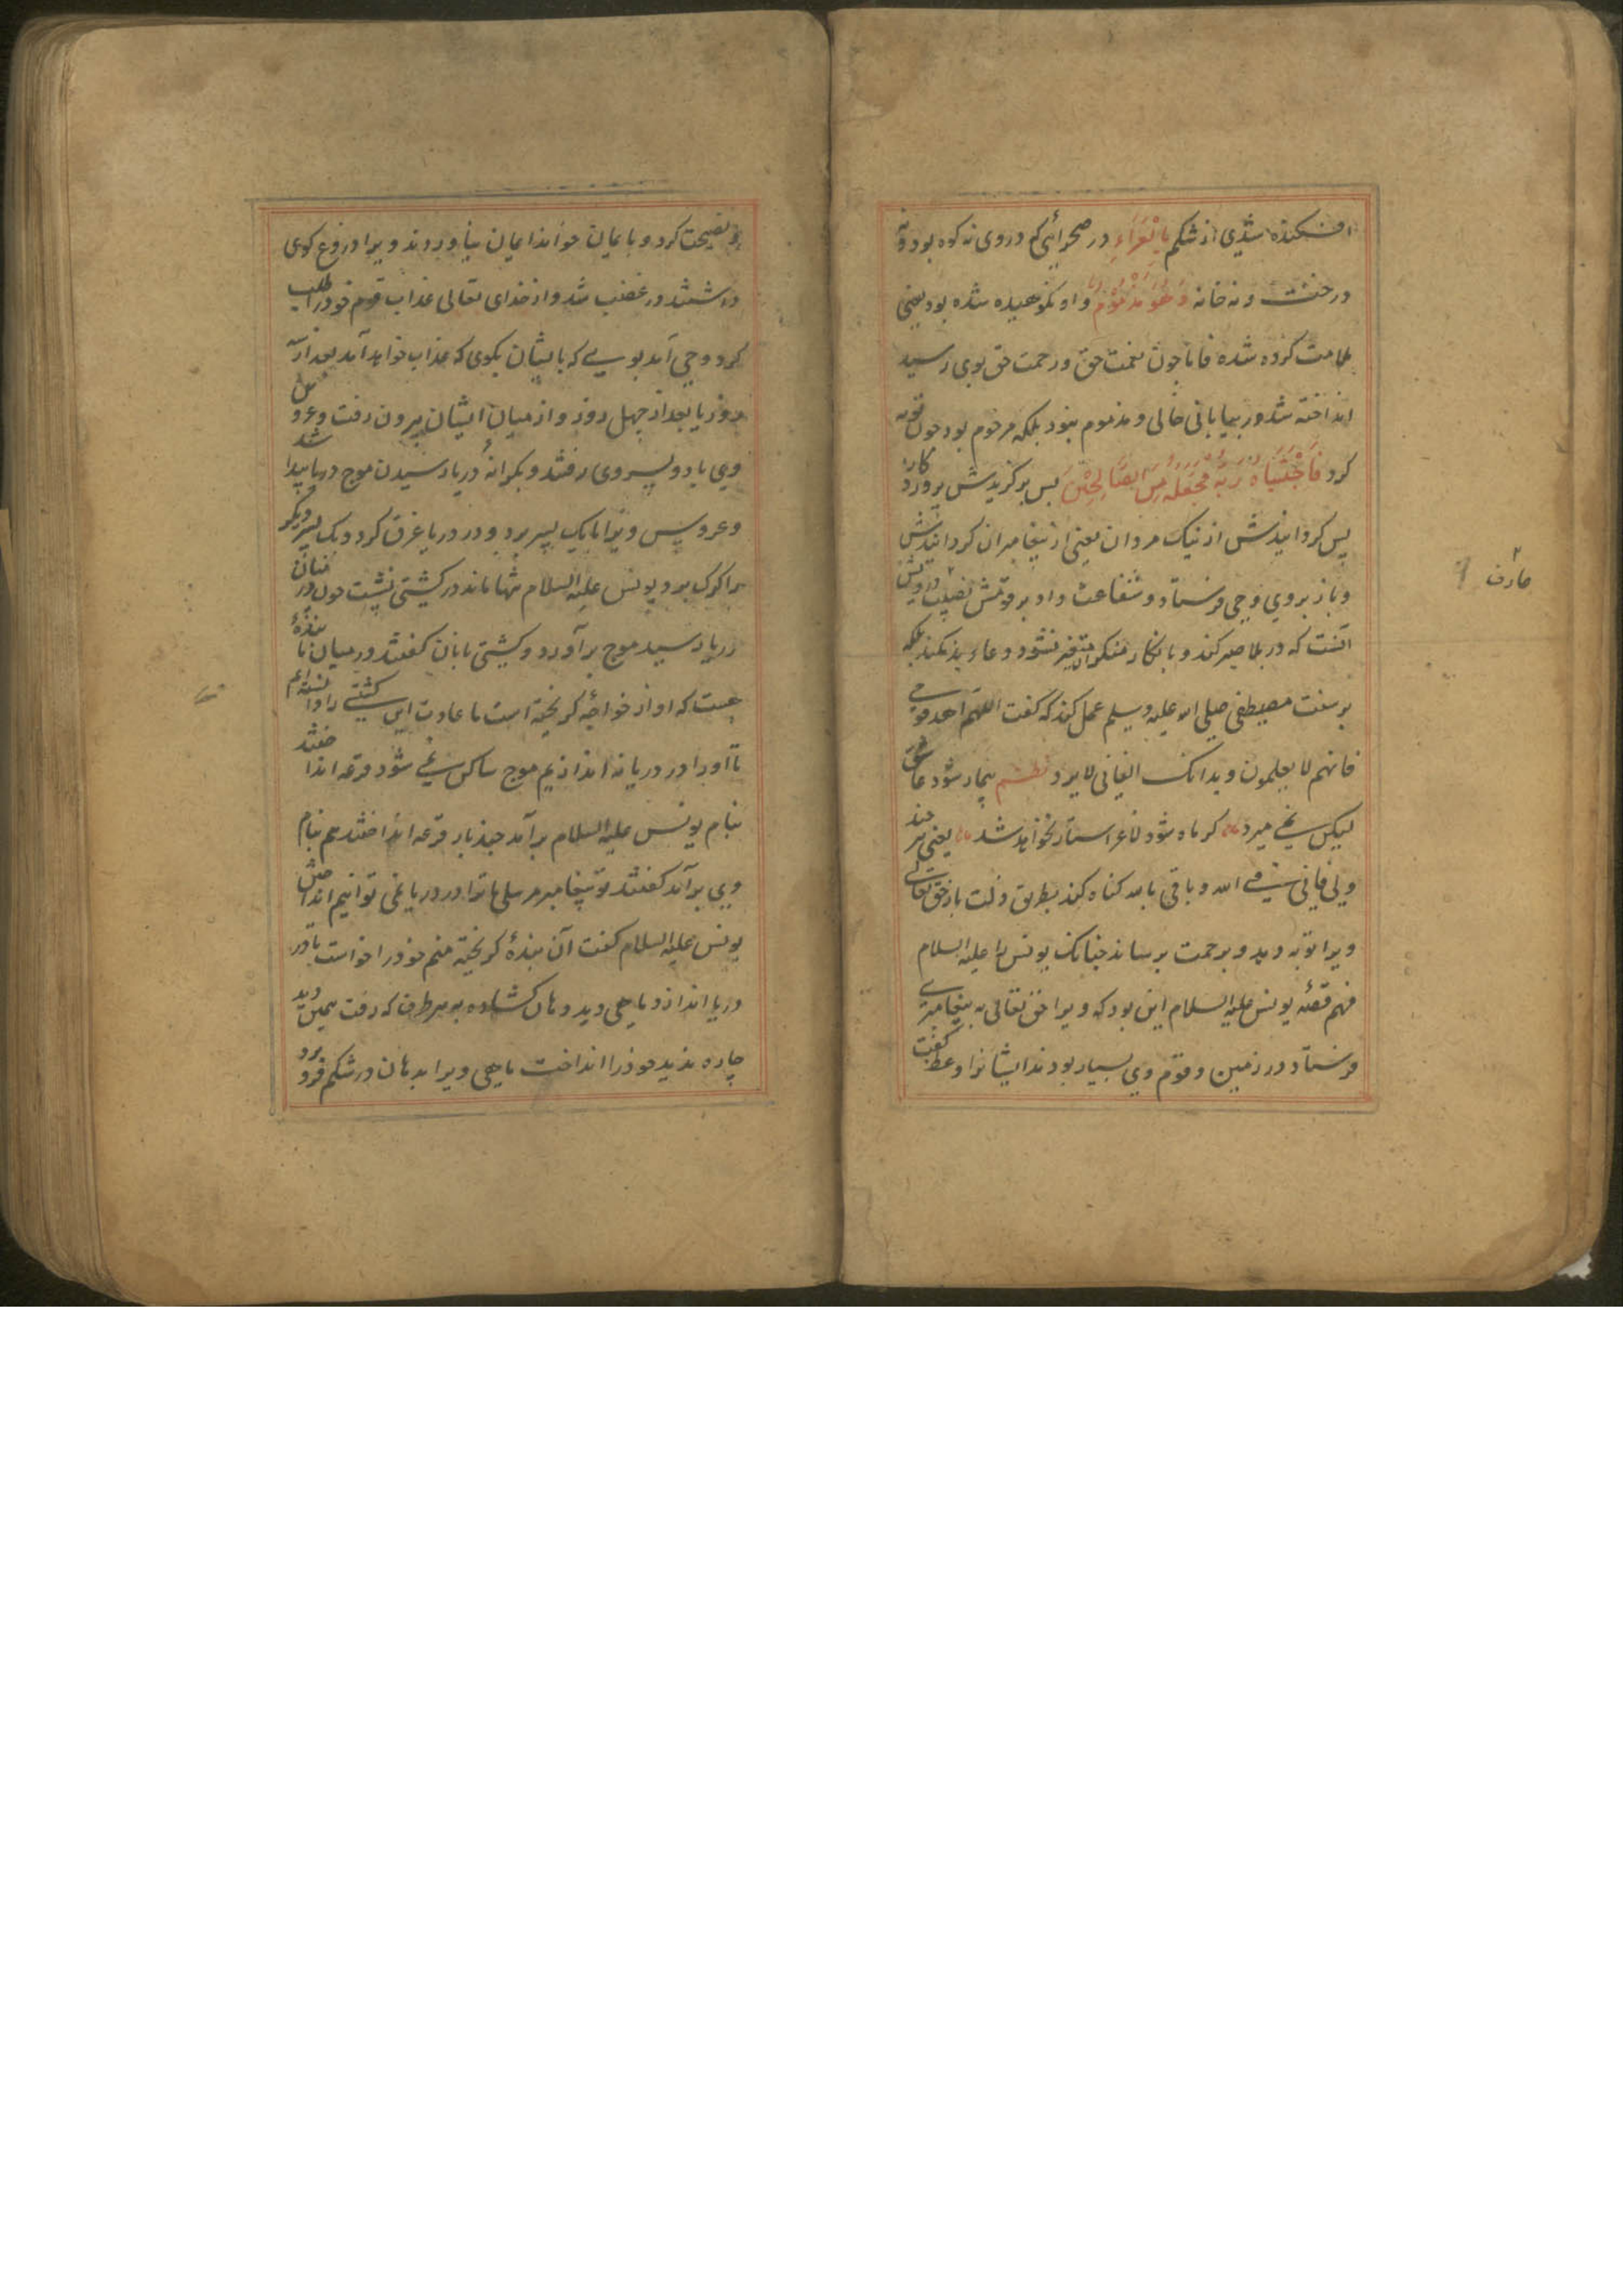 افکنده شدی از شکم بِالْعَرَاءِ در صحرائی که در وی نه کوه بود و نه
درخت و نه خانه وَهُوَ مَذْمُوْمٌ و او نکوهیده شده بود یعنی
ملامت کرده شده فاما چون نعمت حق و رحمت حق بوی رسید
انداخته شد در بیابانی خالی و مذموم نبود بلکه مرحوم بود چون توبه
کرد فَاجْتَبَاهُ رَبُّهُ فَجَعَلَهُ مِنَ الصَّالِحِیْنَ پس برگزیدش پروردکار
پس گردانیدش از نیک مردان یعنی از پیغامبران گردانیدش
و باز بروی وحی فرستاد و شفاعت داد بر قومش نصیب درویش
آنست که در بلا صبر کند و بانکار منکران متغیر نشود و دعاء بد نکند بلکه
بر سنت مصطفی صلی الله علیه وسلم عمل کند که گفت اللهم اهد قومی
فانهم لا یعلمون و بدانک الفانی لا یرد نظم بیمار شود عاشق
لیکن نمی میرد ماه کر ماه شود لاغر استاره نخواهد شد یعنی هر چند
ولی فانی فی الله و باقی بالله گناه کند بطریق زلت باز حق تعالی
ویرا توبه دهد و برحمت برساند چنانک یونس را علیه السلام
فهم قصهٔ یونس علیه السلام این بود که ویرا حق تعالی به پیغامبری
فرستاد در زمین و قوم وی بسیار بودند ایشانرا وعظ گفت
عارف
و نصیحت کرد و بایمان خواند ایمان نیاوردند و ویرا دروغ گوی
داشتند در غضب شد و از خدای تعالی عذاب قوم خود را طلب
کرد وحی آمد بوی که بایشان بگوی که عذاب خواهد آمد بعد از سه
روز یا بعد از چهل روز و از میان ایشان بیرون رفت و عروس
وی با دو پسر وی رفتند و بکرانهٔ دریا رسیدن موج دریا پیدا شد
و عروس ویرا با یک پسر برد و در دریا غرق کرد و یک پسر دیگر
را گرگ برد یونس علیه السلام تنها ماند در کشتی نشست چون در میان
دریا رسید موج برآورد و کشتی بانان گفتند در میان ما بندهٔ
هست که او از خواجه گریخته است ما عادت این کشتی را دانسته ایم
تا او را در دریا نه اندازیم موج ساکن نمی شود قرعه انداختند
بنام یونس علیه السلام برآمد چند بار قرعه انداختند هم بنام
وی برآمد گفتند تو پیغامبر مرسلی ما ترا در دریا نمی توانیم انداختن
یونس علیه السلام گفت آن بندهٔ گریخته منم خود را خواست تا در
دریا اندازد ماهی دید دهان گشاده به هر طرف که رفت همین دید
چاره ندید خود را انداخت ماهی ویرا بدهان در شکم فرو برد